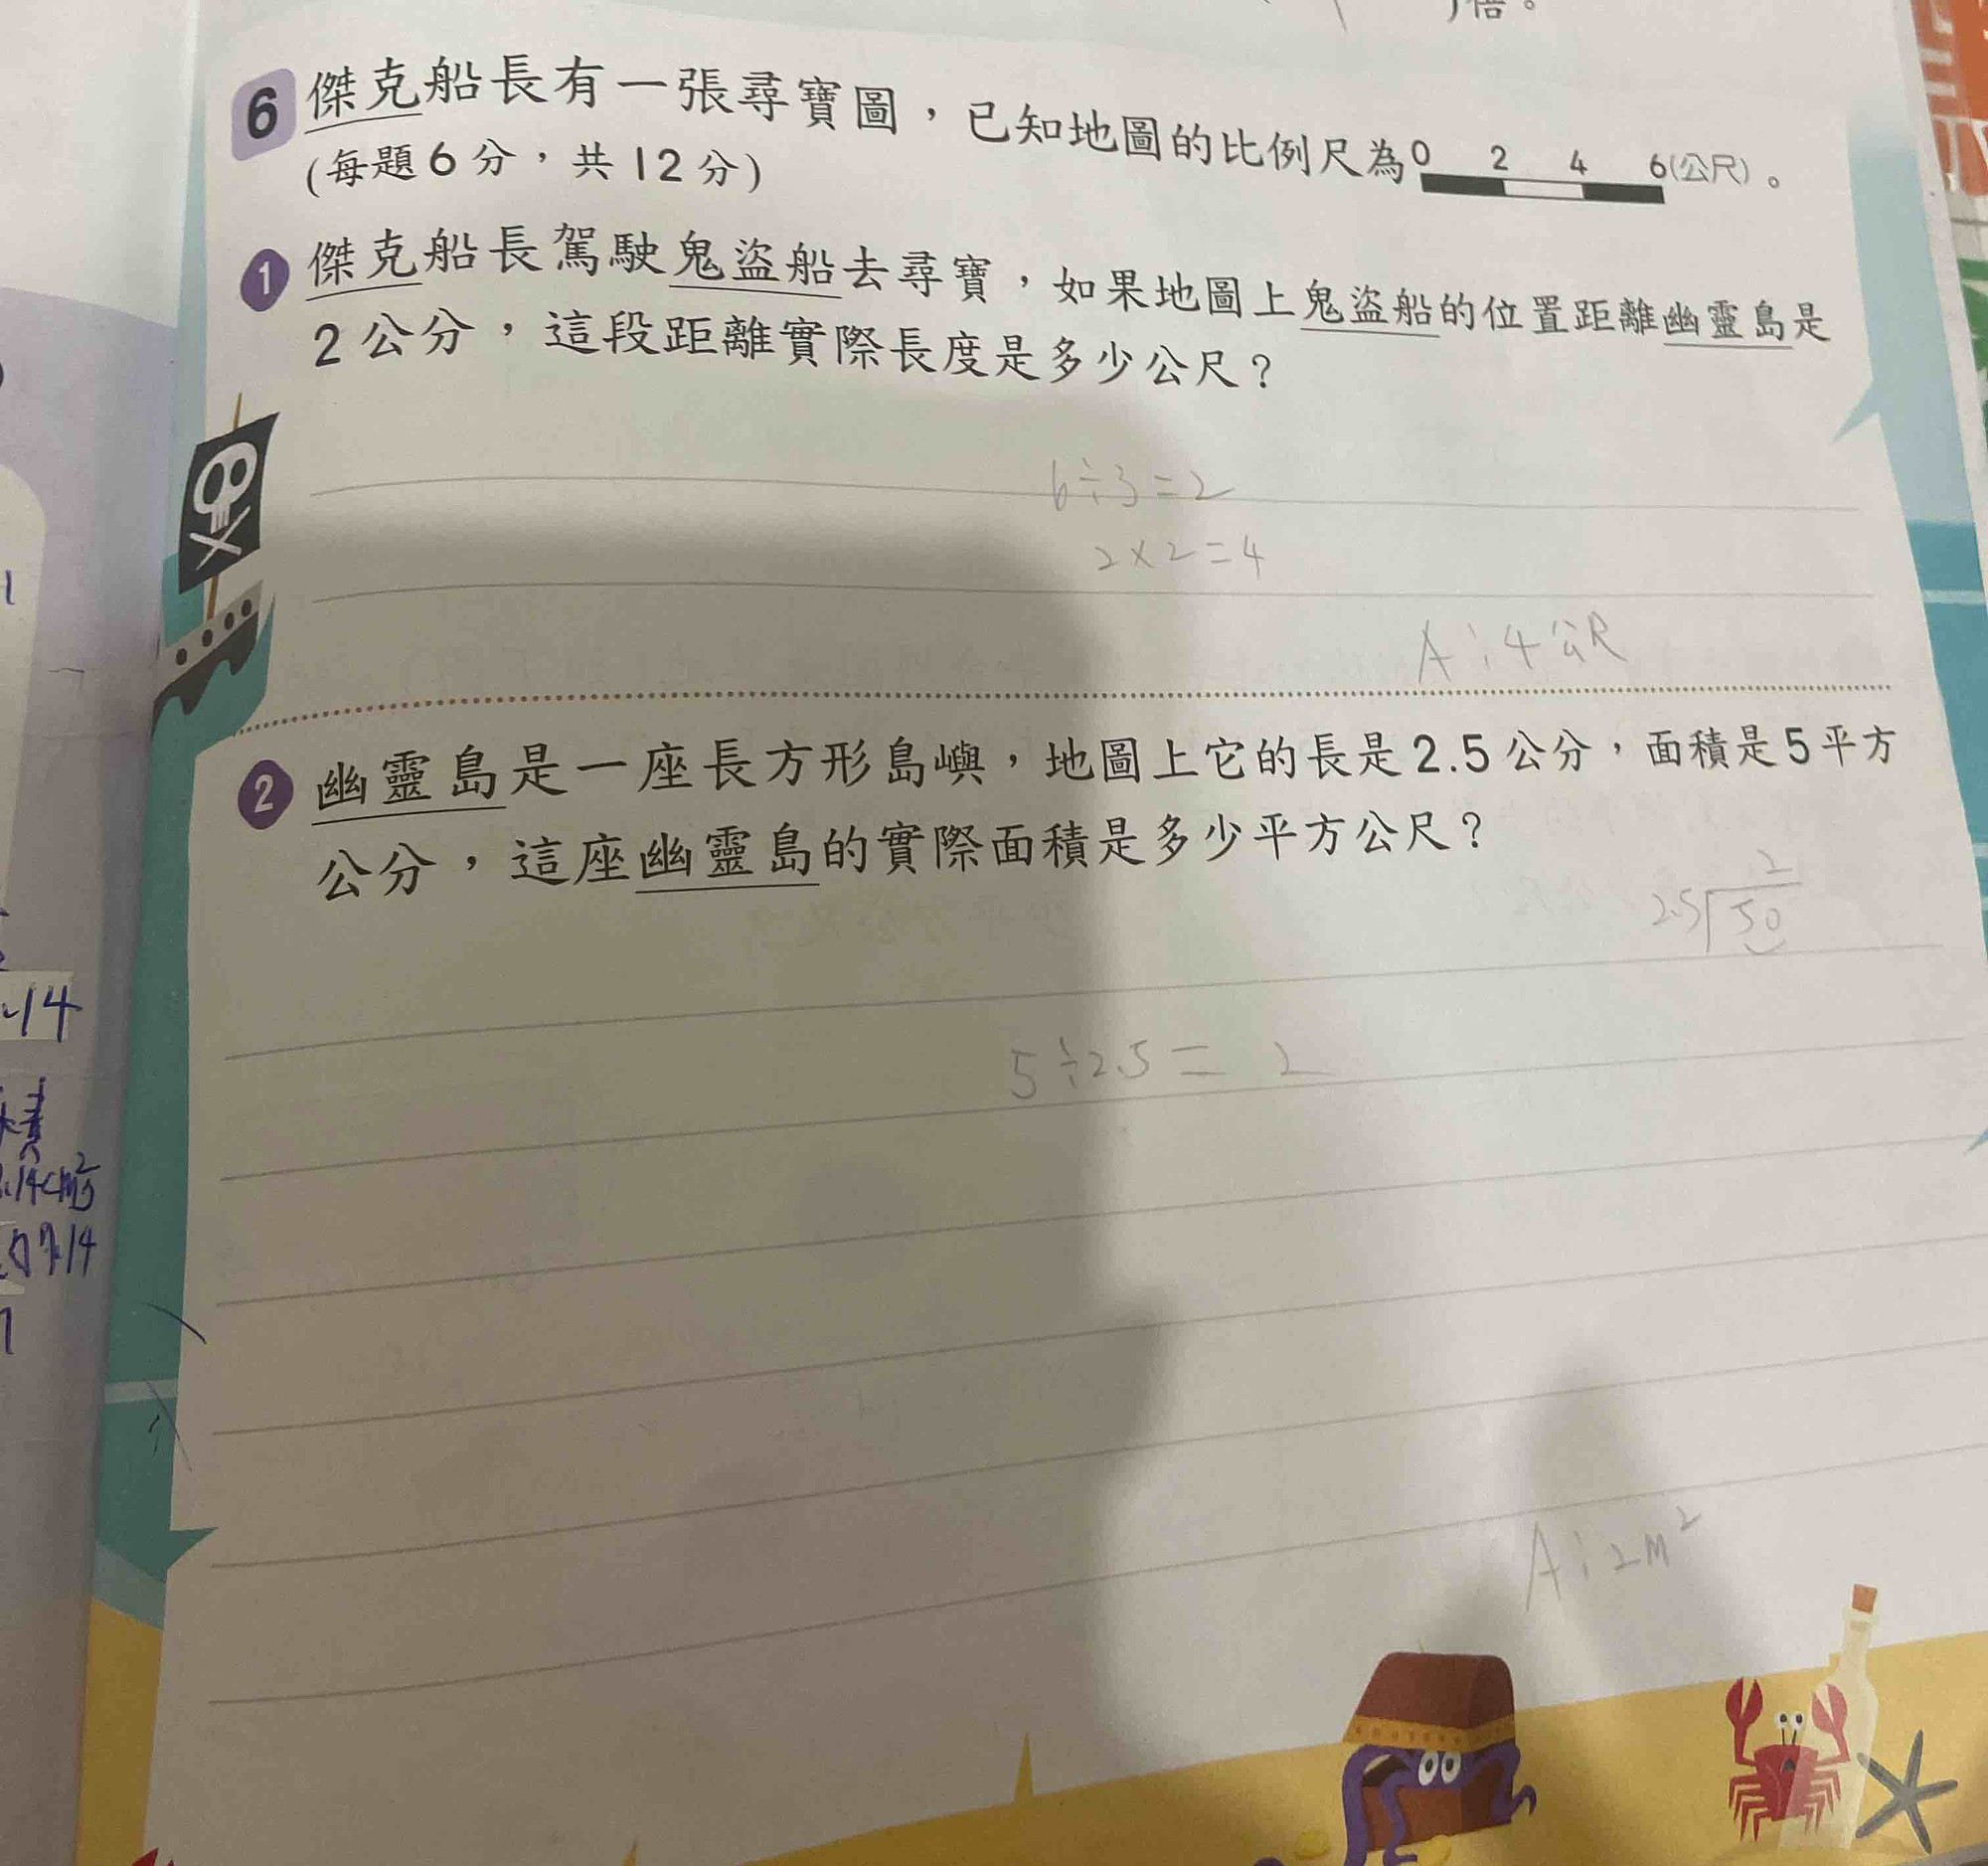 )倍。
6 傑克船長有一張尋寶圖，已知地圖的比例尺為 0 2 4 6(公尺)。
(每題6分，共12分)
1 傑克船長駕駛鬼盜船去尋寶，如果地圖上鬼盜船的位置距離幽靈島是
2公分，這段距離實際長度是多少公尺？
6÷3=2
2×2=4
A：4公尺
2 幽靈島是一座長方形島嶼，地圖上它的長是2.5公分，面積是5平方
公分，這座幽靈島的實際面積是多少平方公尺？
2
2.5 50
5÷2.5=2
A：2m²